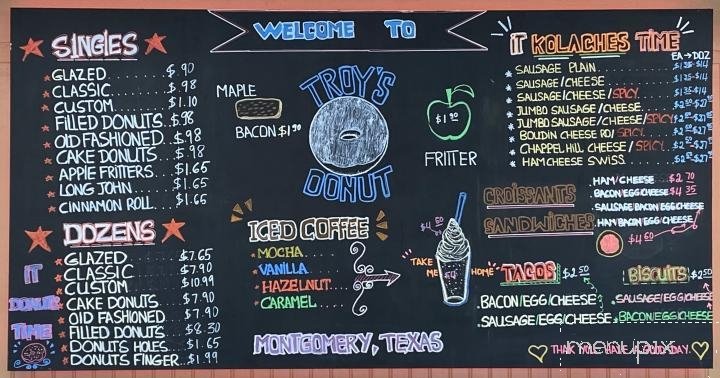 WELCOME TO
SINGLES
GLAZED ........ $ .90
CLASSIC ........ $ .98
CUSTOM ........ $1.10
FILLED DONUTS. $.98
OLD FASHIONED .. $.98
CAKE DONUTS .... $.98
APPLE FRITTERS. $1.65
LONG JOHN ...... $1.65
CINNAMON ROLL ... $1.65
DOZENS
GLAZED ........ $7.65
CLASSIC ........ $7.90
CUSTOM ........ $10.99
CAKE DONUTS .... $7.90
OLD FASHIONED .. $7.90
FILLED DONUTS .. $8.30
DONUTS HOLES ... $1.65
DONUTS FINGER .. $1.99
IT
DONUTS
TIME
MAPLE
BACON $1.90
TROY'S
DONUT
$1.90
FRITTER
ICED COFFEE
MOCHA
VANILLA
HAZELNUT
CARAMEL
TAKE ME HOME
MONTGOMERY, TEXAS
IT KOLACHES TIME
EA → DOZ
SAUSAGE PLAIN
SAUSAGE/CHEESE
SAUSAGE/CHEESE/SPICY
JUMBO SAUSAGE/CHEESE
JUMBO SAUSAGE/CHEESE/SPICY
BOUDIN CHEESE RO/ SPICY
CHAPPEL HILL CHEESE/SPICY
HAM CHEESE SWISS
CROISSANTS
SANDWICHES
HAM/CHEESE $2.70
BACON/EGG/CHEESE $4.35
SAUSAGE BACON/EGG/CHEESE
HAM BACON EGG/CHEESE
$4.60
TACOS $2.50
BACON/EGG/CHEESE
SAUSAGE/EGG/CHEESE
BISCUITS $2.50
SAUSAGE/EGG/CHEESE
BACON/EGG/CHEESE
THANK YOU. HAVE A GOOD DAY.
menupix